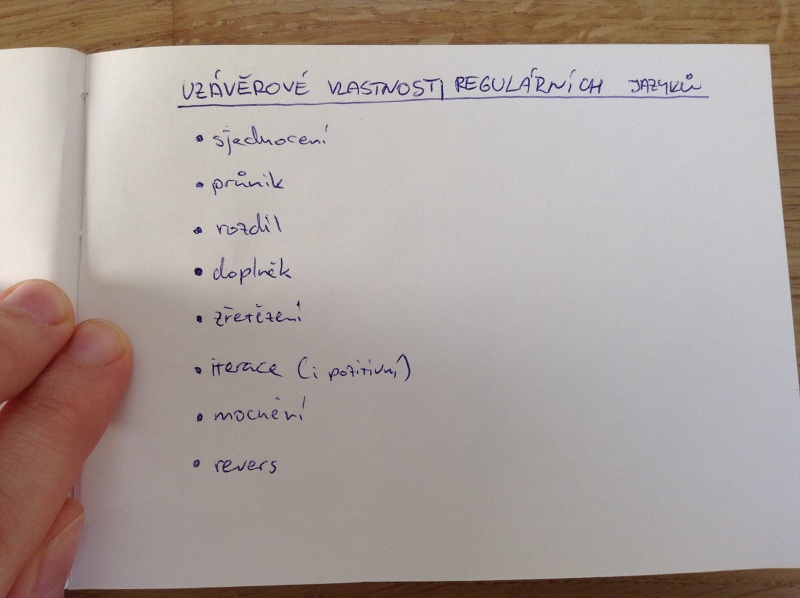 UZÁVĚROVÉ VLASTNOSTI REGULÁRNÍCH JAZYKŮ
• sjednocení
• průnik
• rozdíl
• doplněk
• zřetězení
• iterace (i pozitivní)
• mocnění
• revers